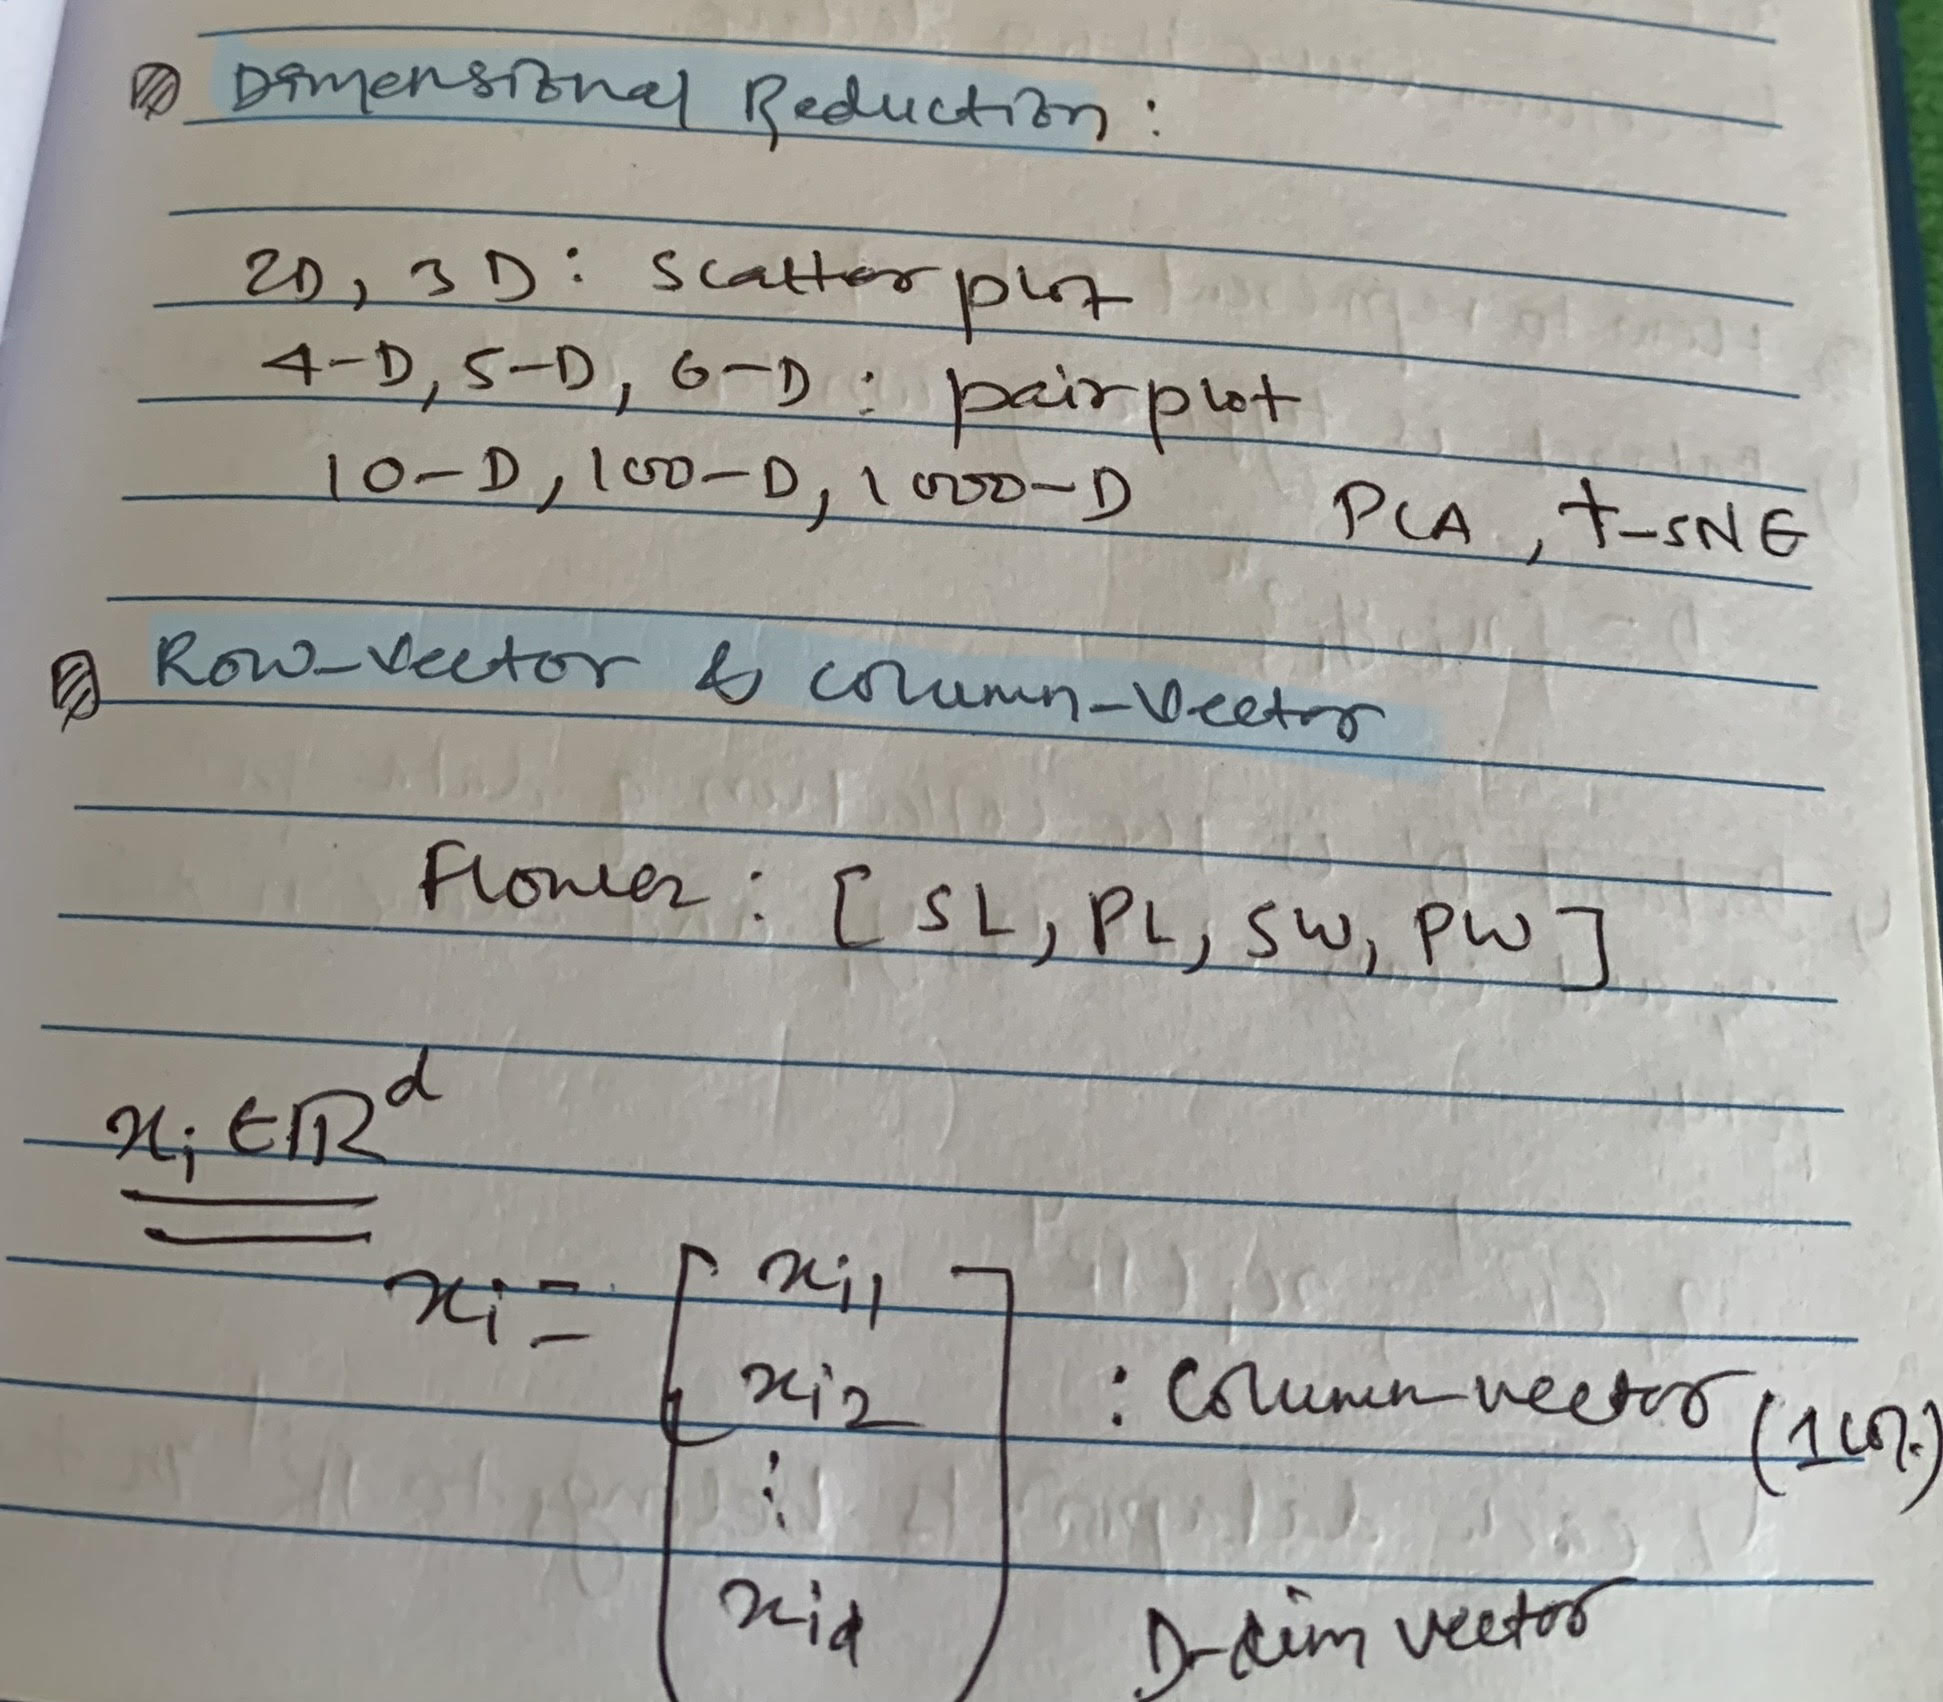 Dimensional Reduction:
2D, 3D: Scatter plot
4-D, 5-D, 6-D: pair plot
10-D, 100-D, 1000-D PCA, t-SNE
Row-Vector & Column-Vector
Flower: [SL, PL, SW, PW]
xᵢ ∈ ℝᵈ
xᵢ = [ xᵢ₁
xᵢ₂ : Column-vector (1 col.)
⋮
xᵢd ] D-dim vector